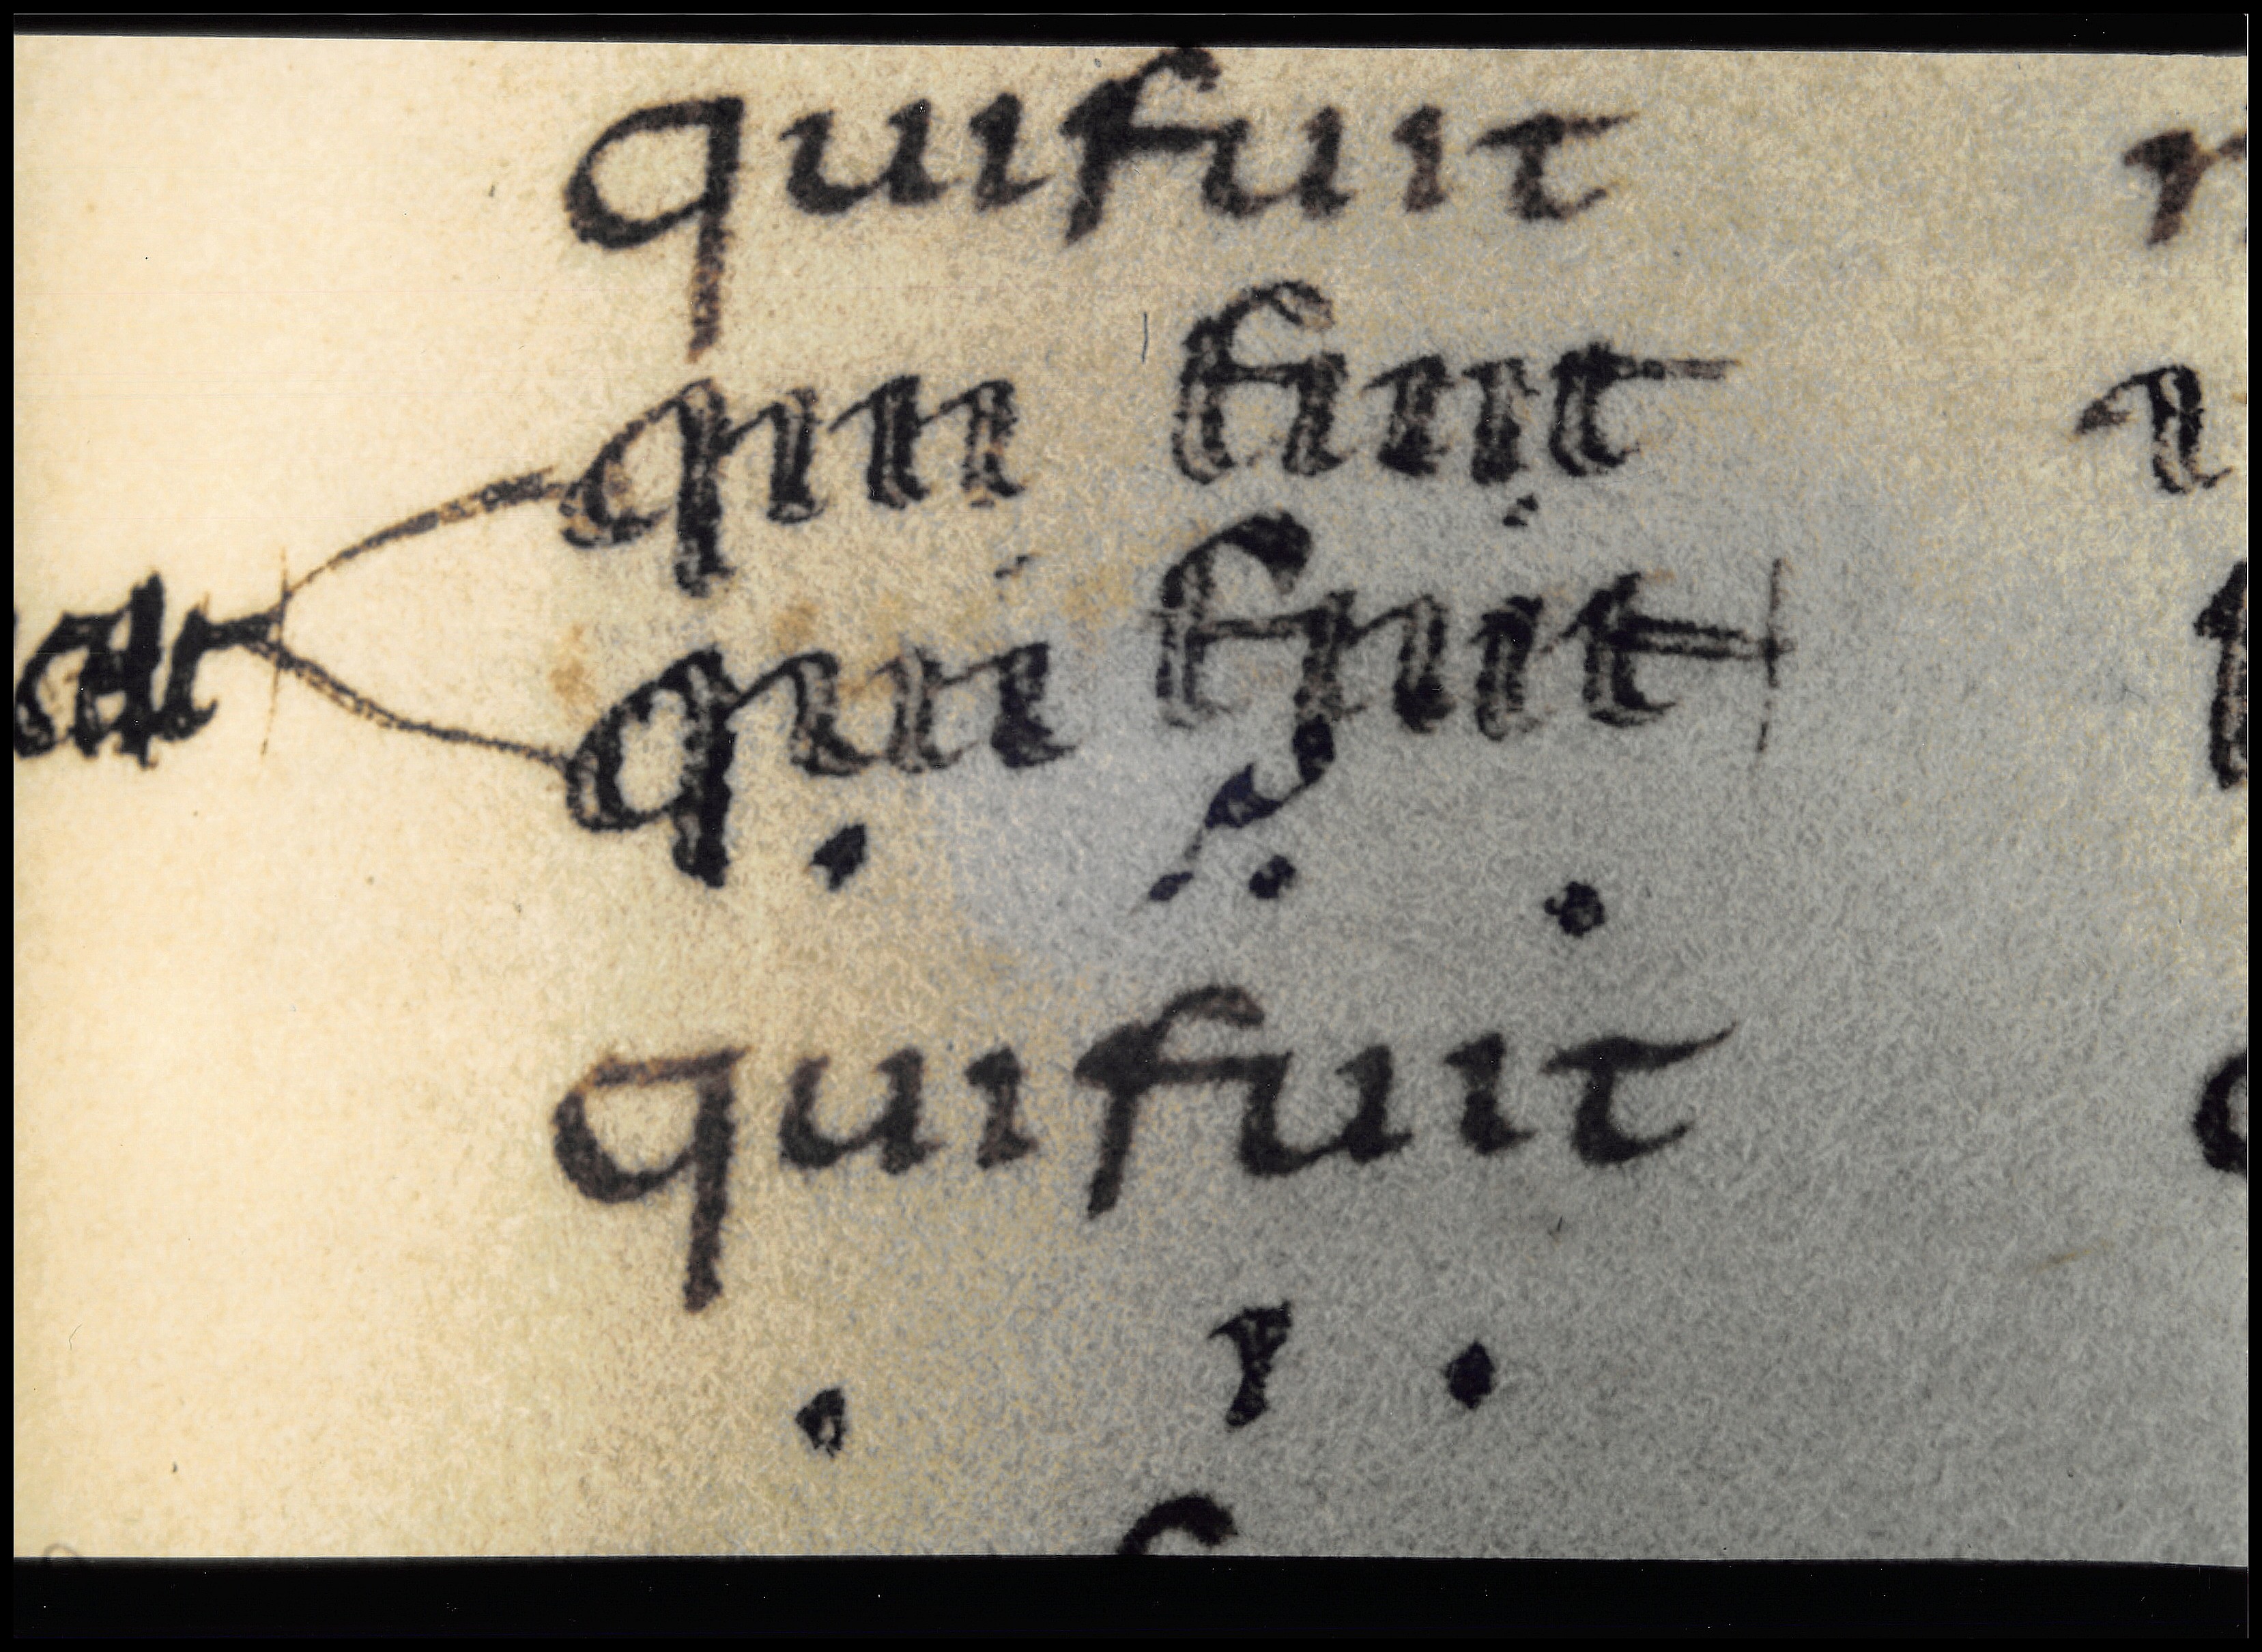 quifuit
qui fuit
qui fuit
quifuit